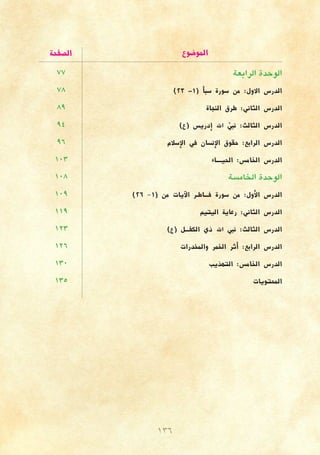 الموضوع الصفحة
الوحدة الرابعة ٧٧
الدرس الاول: من سورة سبأ (١- ٢٢) ٧٨
الدرس الثاني: طرق النجاة ٨٩
الدرس الثالث: نبيّ الله إدريس (ع) ٩٤
الدرس الرابع: حقوق الإنسان في الإسلام ٩٦
الدرس الخامس: الحيـــاء ١٠٣
الوحدة الخامسة ١٠٨
الدرس الأول: من سورة فــاطـر الآيات من (١- ٢٦) ١٠٩
الدرس الثاني: رعاية اليتيم ١١٩
الدرس الثالث: نبي الله ذي الكفــل (ع) ١٢٣
الدرس الرابع: أثر الخمر والمخدرات ١٢٦
الدرس الخامس: التهذيب ١٣٠
المحتويات ١٣٥
١٣٦